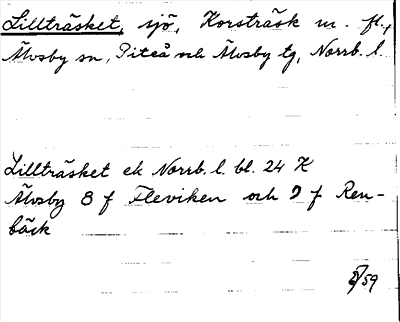 Lillträsket, sjö, Korsträsk m. fl.,
Älvsby sn, Piteå och Älvsby tg, Norrb. l.
Lillträsket ek Norrb. l. bl. 24 K
Älvsby 8 f Fleviken och 9 f Ren-
bäck
/59